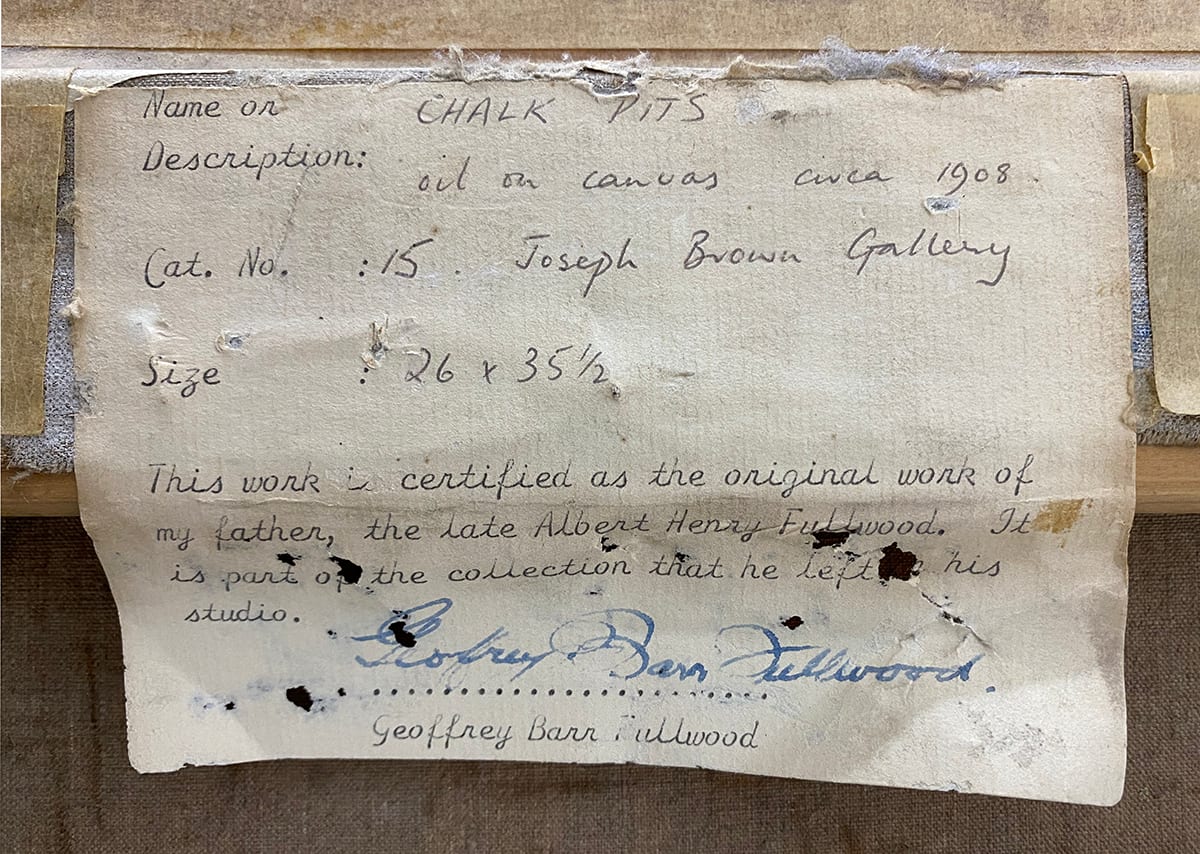 Name or CHALK PITS
Description: oil on canvas circa 1908.
Cat. No. : 15. Joseph Brown Gallery
Size : 26 x 35½
This work is certified as the original work of
my father, the late Albert Henry Fullwood. It
is part of the collection that he left his
studio.
Geoffrey Barr Fullwood.
Geoffrey Barr Fullwood